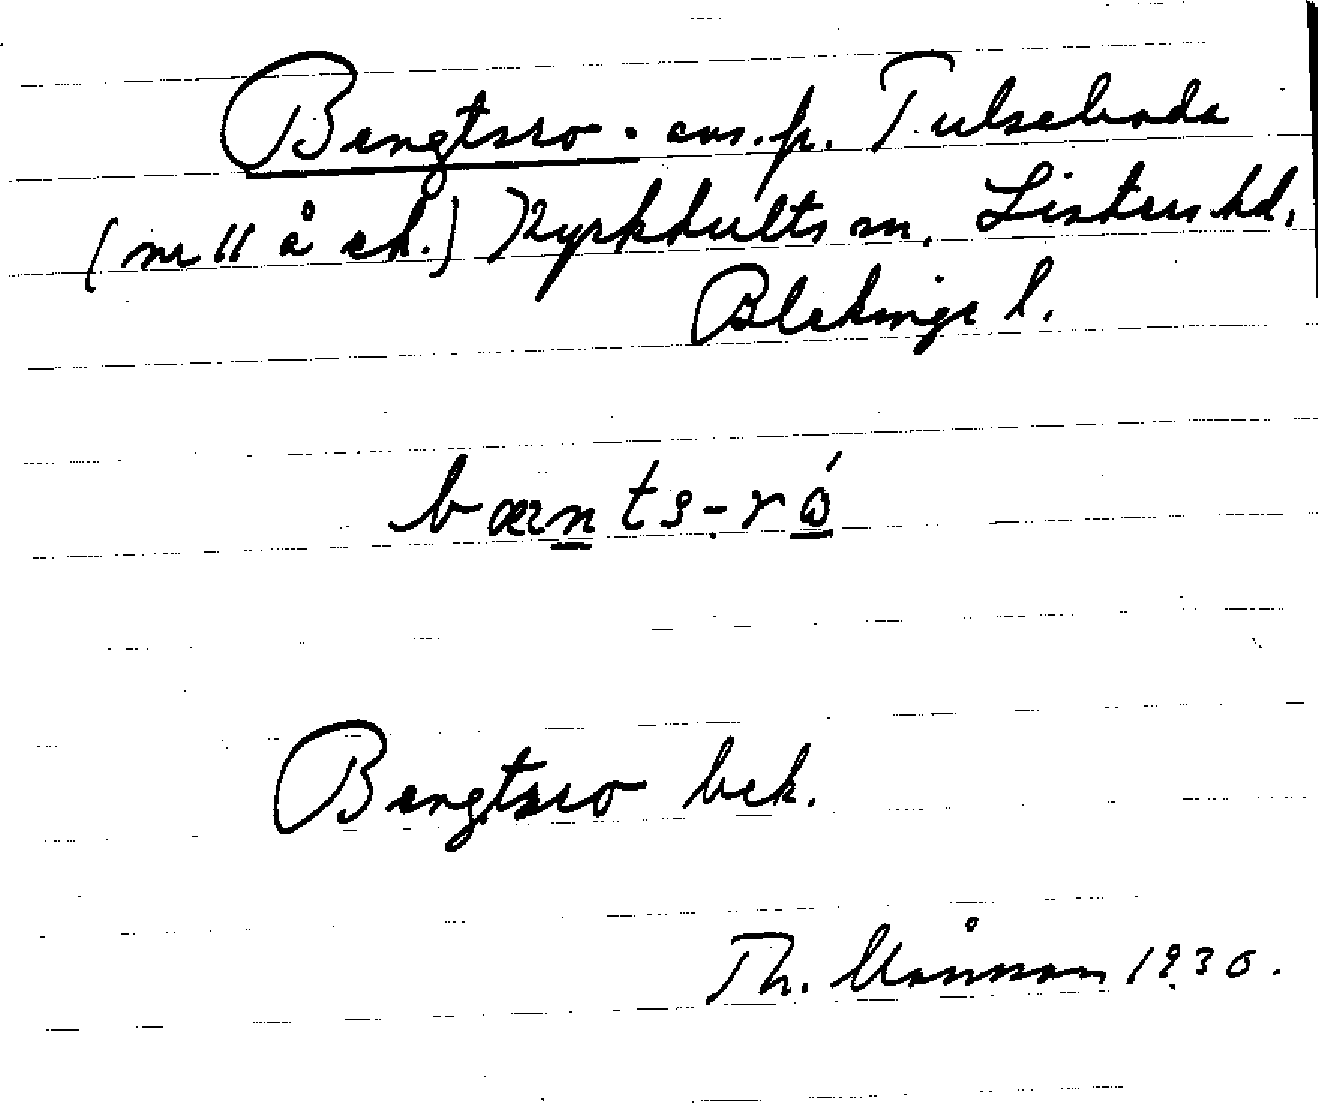 Bengtsro . avs. p. Tulseboda
(nr 11 å ek.) Kyrkhults sn. Listers hd,
Blekinge l.
bænts-ró
Bengtsro bek.
Th. Månsson 1930.